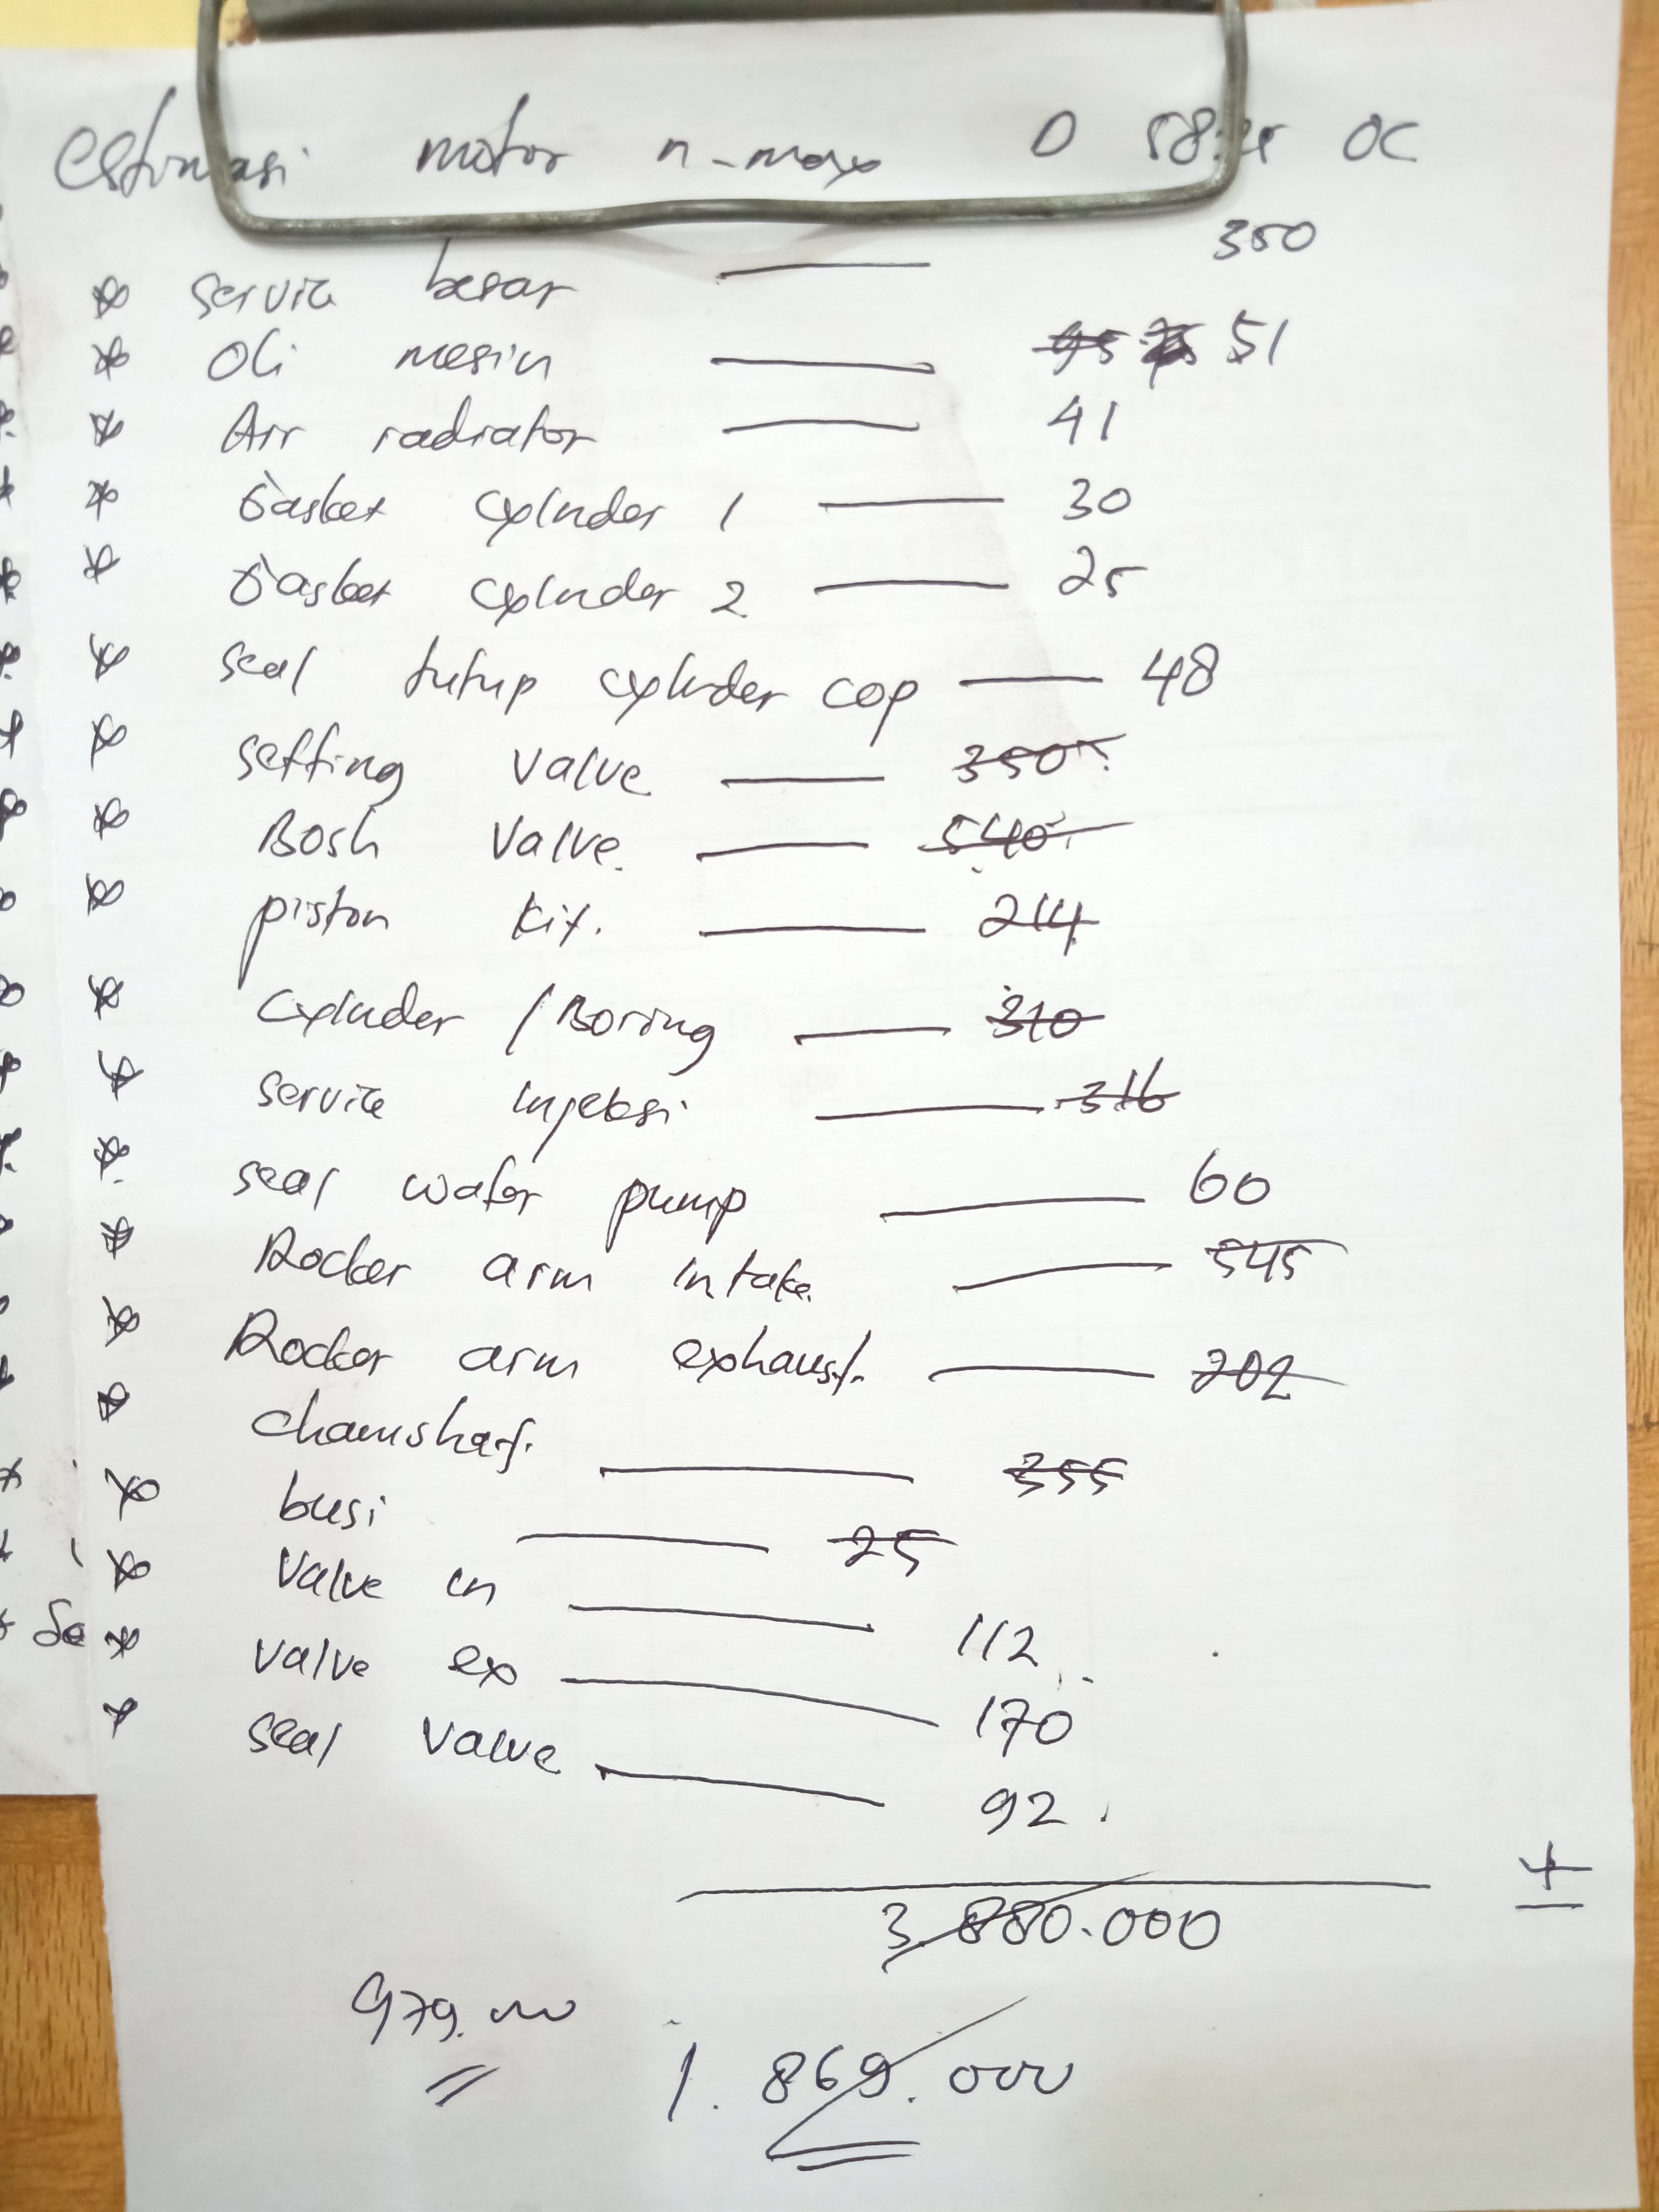 estimasi motor n-max D OC
service besar 350
Oli mesin 95 51
Air radiator 41
Gasket cylnder 1 30
Gasket cylnder 2 25
seal tutup cylnder cop 48
setting valve 350
Bosh valve 540
piston kit. 214
cylnder / Boring 310
service injeksi 316
seal water pump 60
Rocker arm intake 545
Rocker arm exhaust. 202
chamshaf. 355
busi 25
valve in 112
valve ex 170
seal valve 92
+
3.880.000
979.000
1.869.000